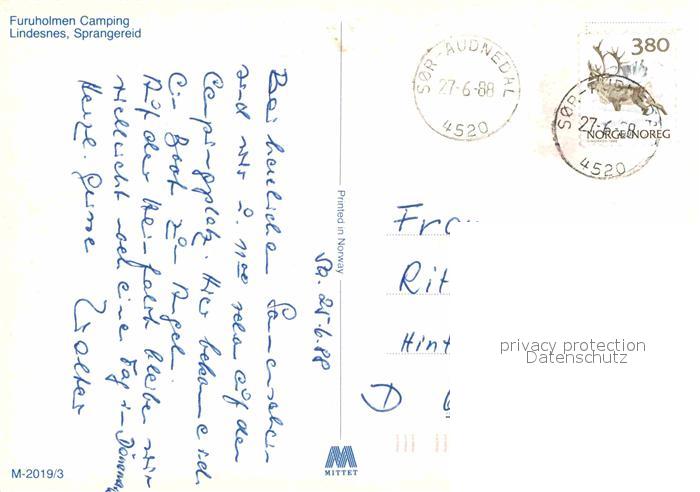 Furuholmen Camping
Lindesnes, Sprangereid
Sa. 25.6.88
Bei herrlichem Sonnenschein
sind wir 11 schon auf dem
Campingplatz. Hier bekomme ich
ein Boot zum Angeln.
Auf der Heimfahrt bleiben wir
vielleicht noch eine Tag in
Herzl. Grüsse
Walter
Printed in Norway
M-2019/3
MITTET
SØR-AUDNEDAL
27-6-88
4520
380
NORGE NOREG
SØR-AUDNEDAL
27-6-88
4520
Fra
Rit
Hint
D
privacy protection
Datenschutz